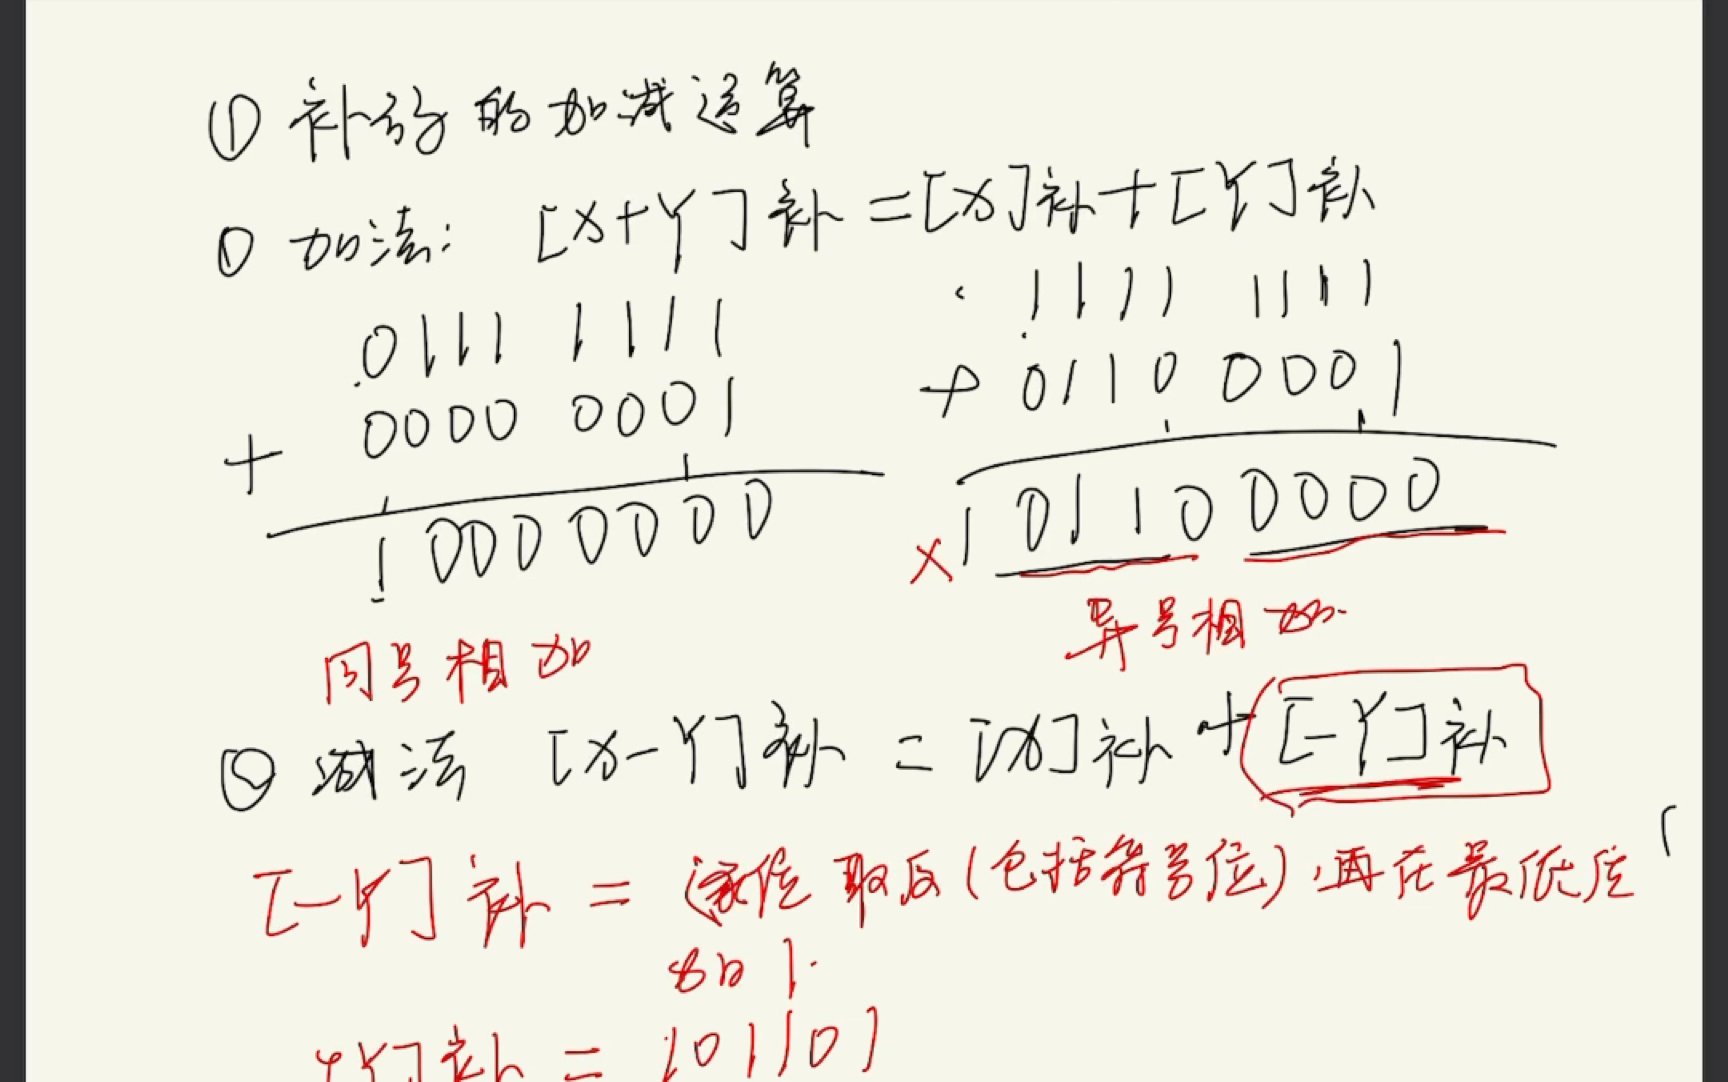 ① 补码的加减运算
① 加法: [X+Y]补=[X]补+[Y]补
0111 1111
+ 0000 0001
1 000 0000
同号相加
1111 1111
+ 0110 0001
×1 0110 0000
异号相加
② 减法 [X-Y]补 = [X]补 + [-Y]补
[-Y]补 = 逐位取反(包括符号位),再在最低位
加1.
Y]补 = 101101